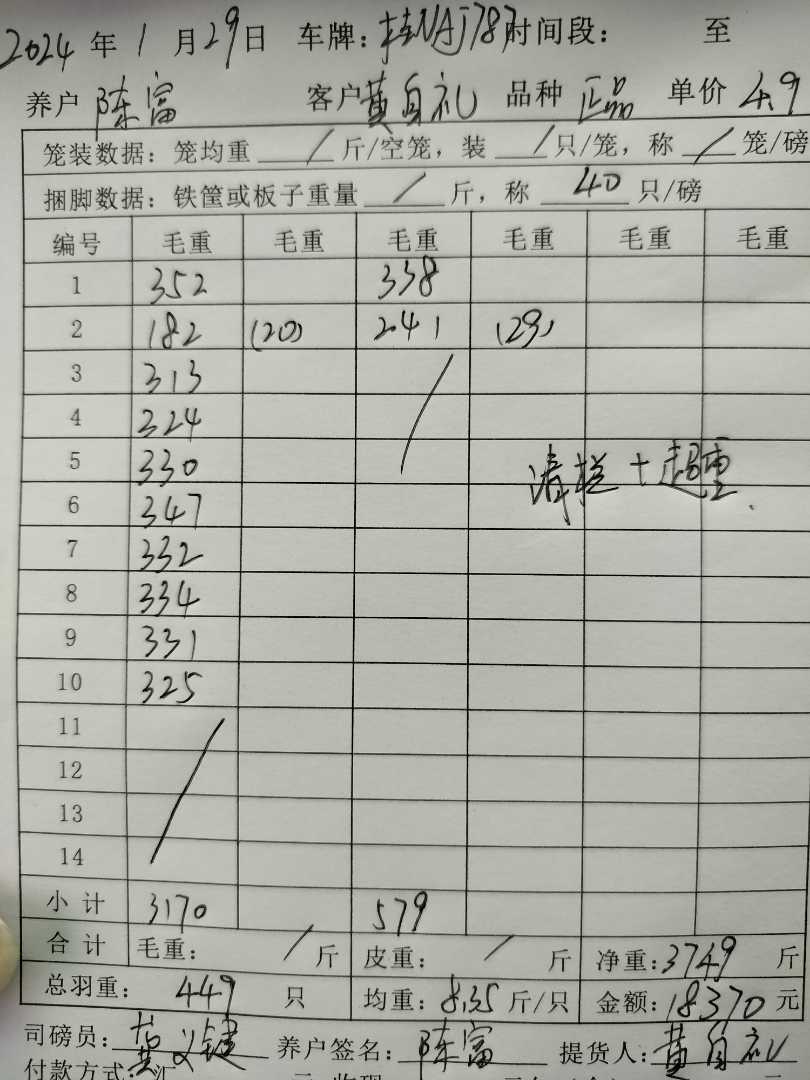 2024 年 1 月 29 日 车牌: 桂NAJ787 时间段: 至
养户 陈富 客户 黄自礼 品种 正品 单价 4.9
笼装数据: 笼均重 / 斤/空笼, 装 / 只/笼, 称 / 笼/磅
捆脚数据: 铁筐或板子重量 / 斤, 称 40 只/磅
编号 毛重 毛重 毛重 毛重 毛重 毛重
1 352 338
2 182 (20) 241 (29)
3 313 /
4 324
5 330 清栏+超重
6 347
7 332
8 334
9 331
10 325
11 /
12
13
14
小计 3170 579
合计 毛重: / 斤 皮重: / 斤 净重: 3749 斤
总羽重: 449 只 均重: 8.35 斤/只 金额: 18370 元
司磅员: 黄义键 养户签名: 陈富 提货人: 黄自礼
付款方式: 汇